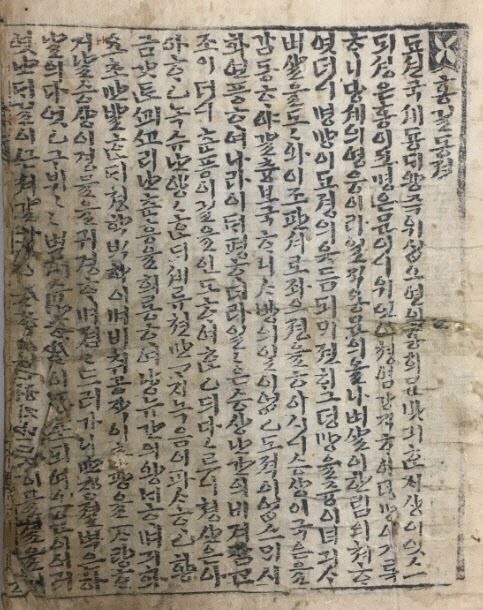 홍길동젼
됴션국 셰둉대왕 즉위 십오연의 홍희문 밧긔 ᄒᆞᆫ ᄌᆡ상이 잇스
되 셩은 홍이요 명은 문이니 위인이 쳥염강직ᄒᆞ여 덕망이 거록
ᄒᆞ니 당셰의 영웅이라 일직 용문의 올나 벼살이 할림의 쳐ᄒᆞ
엿더니 명망이 됴졍의 읏듬 되ᄆᆡ 젼하 그 덕망을 승이 녀긔ᄉᆞ
벼살을 도도와 이조판셔로 좌으졍을 ᄒᆞ이시니 승상이 국은을
감동ᄒᆞ야 갈츙보국ᄒᆞ니 ᄉᆞ방의 일이 업고 도젹이 업스ᄆᆡ 시
화연풍ᄒᆞ여 나라이 ᄐᆡ평ᄒᆞ더라 일일은 승상 난간의 비겨 잠ᄭᅡᆫ
조이더니 ᄒᆞᆫ풍이 길을 인도ᄒᆞ여 ᄒᆞᆫ 고ᄃᆡ 다다르니 쳥산은 아
아ᄒᆞ고 녹슈난 양양ᄒᆞᆫᄃᆡ 셰류 쳔만 가지 녹음이 파사ᄒᆞ고 황
금 갓튼 ᄭᅬᄭᅩ리난 츈흥을 희롱ᄒᆞ여 양유간의 왕ᄂᆡᄒᆞ며 긔화
요초 만발ᄒᆞᆫᄃᆡ 쳥학 ᄇᆡᆨ학이며 비취 공작이 츈광을 ᄌᆞ랑ᄒᆞ
거날 승상이 경물을 귀경ᄒᆞ며 졈졈 드러가니 만장졀벽은 하
날의 다엿고 구뷔구뷔 벽계
엿난ᄃᆡ 길이 ᄭᅳᆫ쳐 갈 바